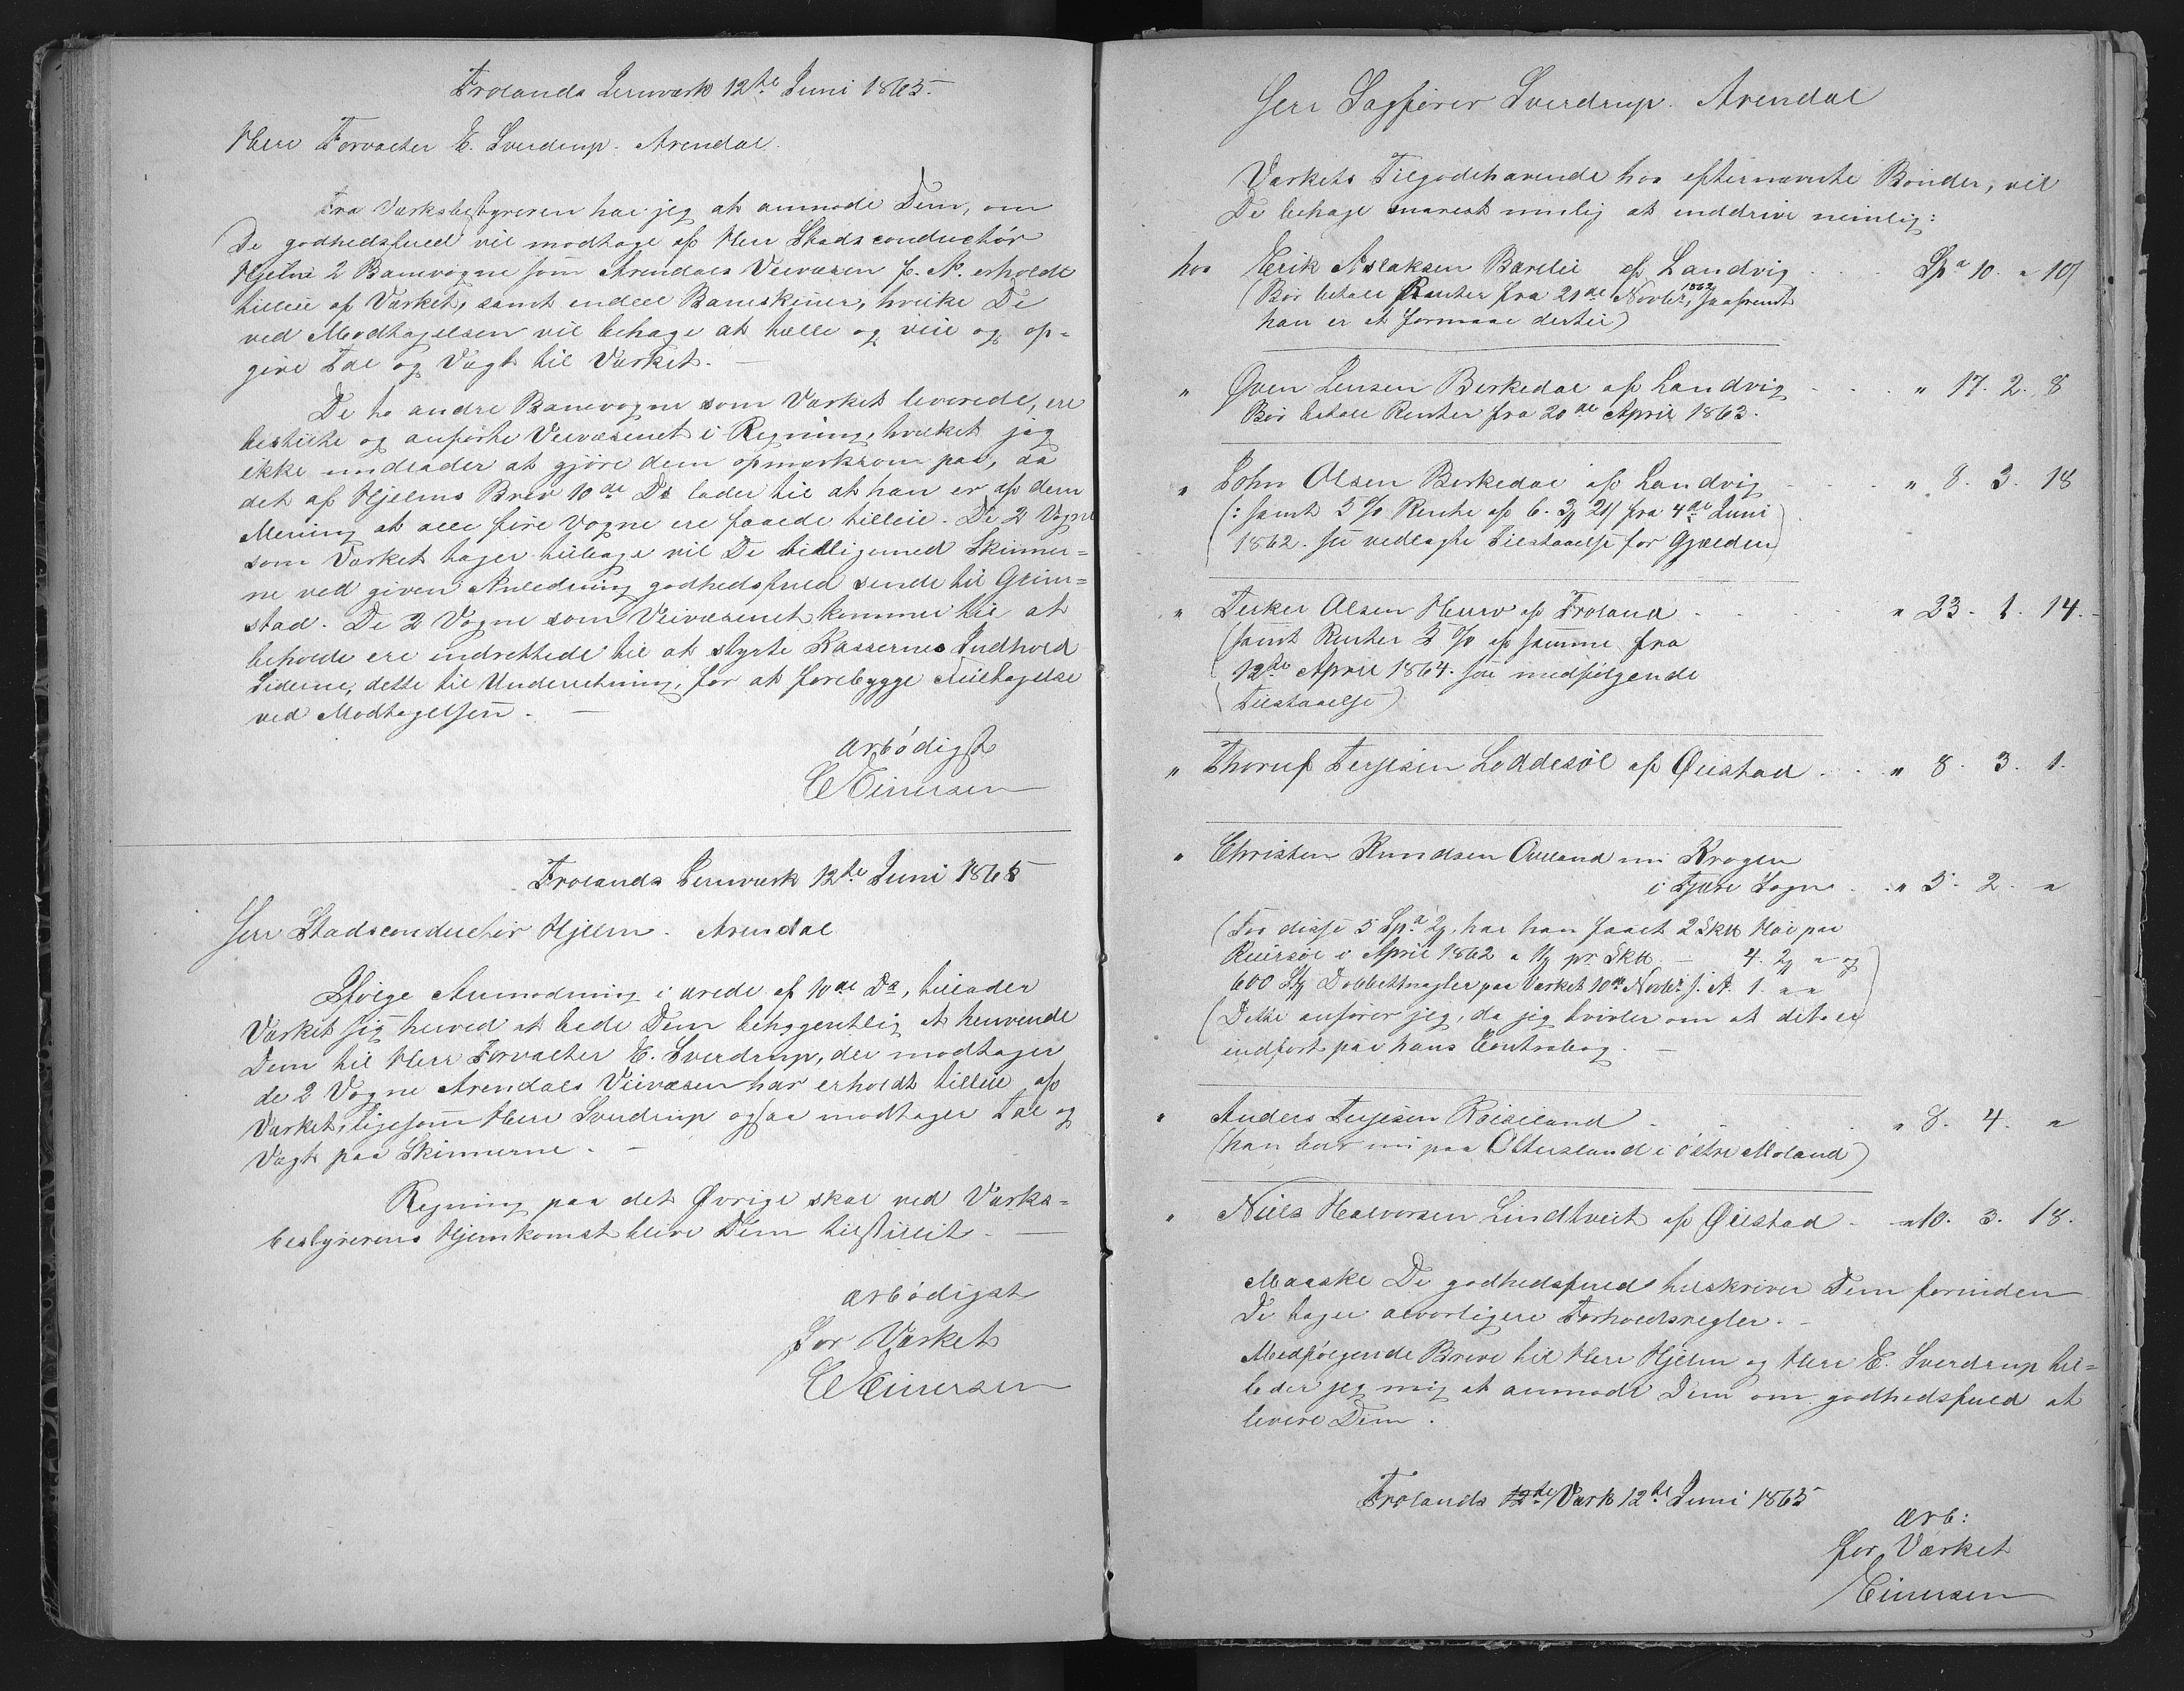 Frolands Jernværk 12te Juni 1865.
Herr Forvalter E. Sverdrup. Arendal.
Fra Værksbestyreren har jeg at anmode Dem, om
De godhedsfuld vil modtage af Herr Stadsconductør
Hjelm 2 Banevogne som Arendals Veivæsen f. A. erholdt
tilleie af Værket, samt endeel Baneskinner, hvilke De
ved Modtagelsen vil behage at tælle og veie og op-
give Tal og Vægt til Værket. —
De to andre Banevogne som Værket leverede, ere
bestilte og anførte Veivæsenet i Regning, hvilket jeg
ikke undlader at gjøre dem opmærksom paa, da
det af Hjelms Brev 10de Ds lader til at han er af dem
Mening at alle fire Vogne ere faaede tilleie. De 2 Vogne
som Værket tager tilbage vil De tilligemed Skinner-
ne ved given Anledning godhedsfuld sende til Grim-
stad. De 2 Vogne som Veivæsenet kommer til at
beholde ere indrettede til at styrte Kassernes Indhold
Siderne, dette til Underretning, for at forebygge Feiltagelse
ved Modtagelsen. —
ærbødigst
CEinersen
Frolands Jernværk 12te Juni 1865
Herr Stadsconductør Hjelm. Arendal
Ifølge Anmodning i ærede af 10de Ds, tillader
Værket sig herved at bede Dem behageligt at henvende
Dem til Herr Forvalter E. Sverdrup, der modtager
de 2 Vogne Arendals Veivæsen har erholdt tilleie af
Værket, ligesom Herr Sverdrup ogsaa modtager Tal og
Vægt paa Skinnerne. —
Regning paa det Øvrige skal ved Værks-
bestyrerens Hjemkomst blive Dem tilstillet. —
ærbødigst
for Værket
CEinersen
Herr Sagfører Sverdrup. Arendal
Værkets Tilgodehavende hos efternævnte Bønder, vil
De behage snarest mulig at inddrive nemlig:
hos Erik Aslaksen Barlie af Landvig . . . Spd 10. " 10
(Bør betale Renter fra 21de Novbr 1862, saafremt
han er at formaae dertil)
" Øven Jensen Berkedal af Landvig . . . " 17. 2. 8
Bør betale Renter fra 20de April 1863.
" John Olsen Berkedal af Landvig . . . " 8. 3. 18
(: samt 5 % Rente af 6. 3 21 fra 4de Juni
1862. see vedlagte Tilstaaelse for Gjælden)
" Terkel Olsen Heuv af Froland . . . " 23. 1. 14.
(samt Renter 5 % af samme fra
12te April 1864. see medfølgende
Tilstaaelse)
" Thoruf Terjesen Loddesøl af Øiestad . . . " 8. 3. 1.
" Christen Knudsen Aaland nu Krogen
i Fjære Sogn . . " 5. 2. "
(For disse 5 Spd 2, har han faaet 2 Sk Høi paa
Reiersøl i April 1862 a pr. Sk — 4. 2 " og
600 Stk Dobbeltnagler paa Værket 10de Novbr s. A. 1. " "
(Dette anfører jeg, da jeg tvivler om at det er
indført paa hans Contrabog. —
" Anders Terjesen Røiseland . . . " 8. 4. "
(han boer nu paa Ottersland i Østre Moland)
" Niels Halvorsen Lindtveit af Øiestad . " 10. 3. 18.
Maaske De godhedsfuld tilskriver Dem forinden
De tager alvorligere Forholdsregler. —
Medfølgende Breve til Herr Hjelm og Herr E. Sverdrup til-
lader jeg mig at anmode Dem om godhedsfuld at
levere Dem.
Frolands 12de Værk 12te Juni 1865
ærb:
for Værket
Einersen